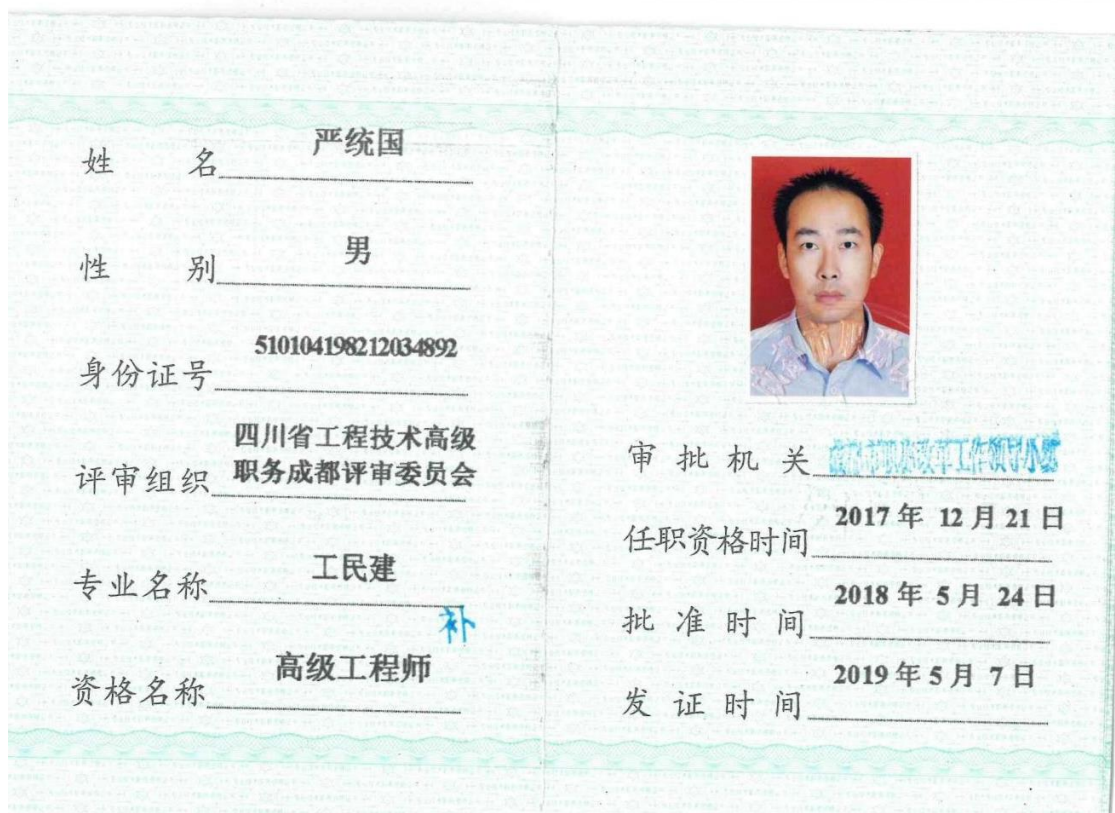 姓 名 严统国
性 别 男
身份证号 510104198212034892
评审组织 四川省工程技术高级
职务成都评审委员会
专业名称 工民建
补
资格名称 高级工程师
审批机关
任职资格时间 2017 年 12 月 21 日
批准时间 2018 年 5 月 24 日
发证时间 2019 年 5 月 7 日